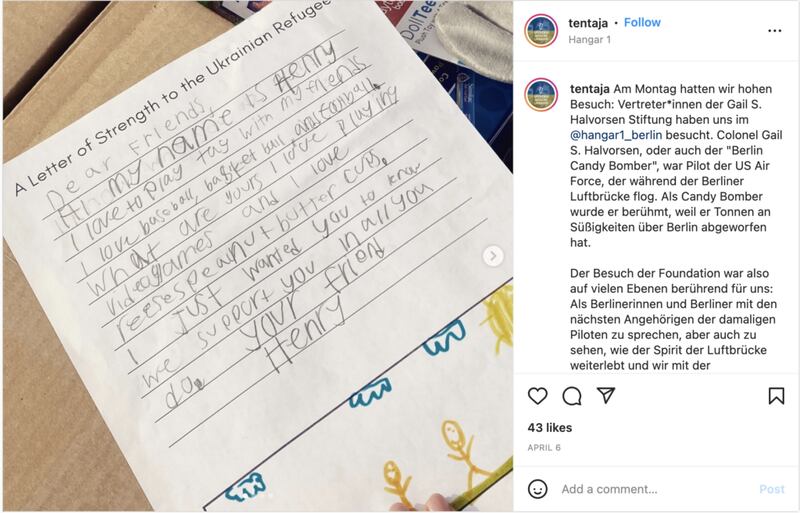 DollTee
A Letter of Strength to the Ukrainian Refugee
Dear Friends,
Hi my name is Henry
I love to play tay with my friends
I love baseball, basket ball, and football.
What are yours I love playing
videogames and love
reeses peanut butter cups.
I just wanted you to know
we support you in all you
do. your friend
Henry
tentaja • Follow
Hangar 1
tentaja Am Montag hatten wir hohen
Besuch: Vertreter*innen der Gail S.
Halvorsen Stiftung haben uns im
@hangar1_berlin besucht. Colonel Gail
S. Halvorsen, oder auch der "Berlin
Candy Bomber", war Pilot der US Air
Force, der während der Berliner
Luftbrücke flog. Als Candy Bomber
wurde er berühmt, weil er Tonnen an
Süßigkeiten über Berlin abgeworfen
hat.
Der Besuch der Foundation war also
auf vielen Ebenen berührend für uns:
Als Berlinerinnen und Berliner mit den
nächsten Angehörigen der damaligen
Piloten zu sprechen, aber auch zu
sehen, wie der Spirit der Luftbrücke
weiterlebt und wir mit der
43 likes
APRIL 6
Add a comment...
Post